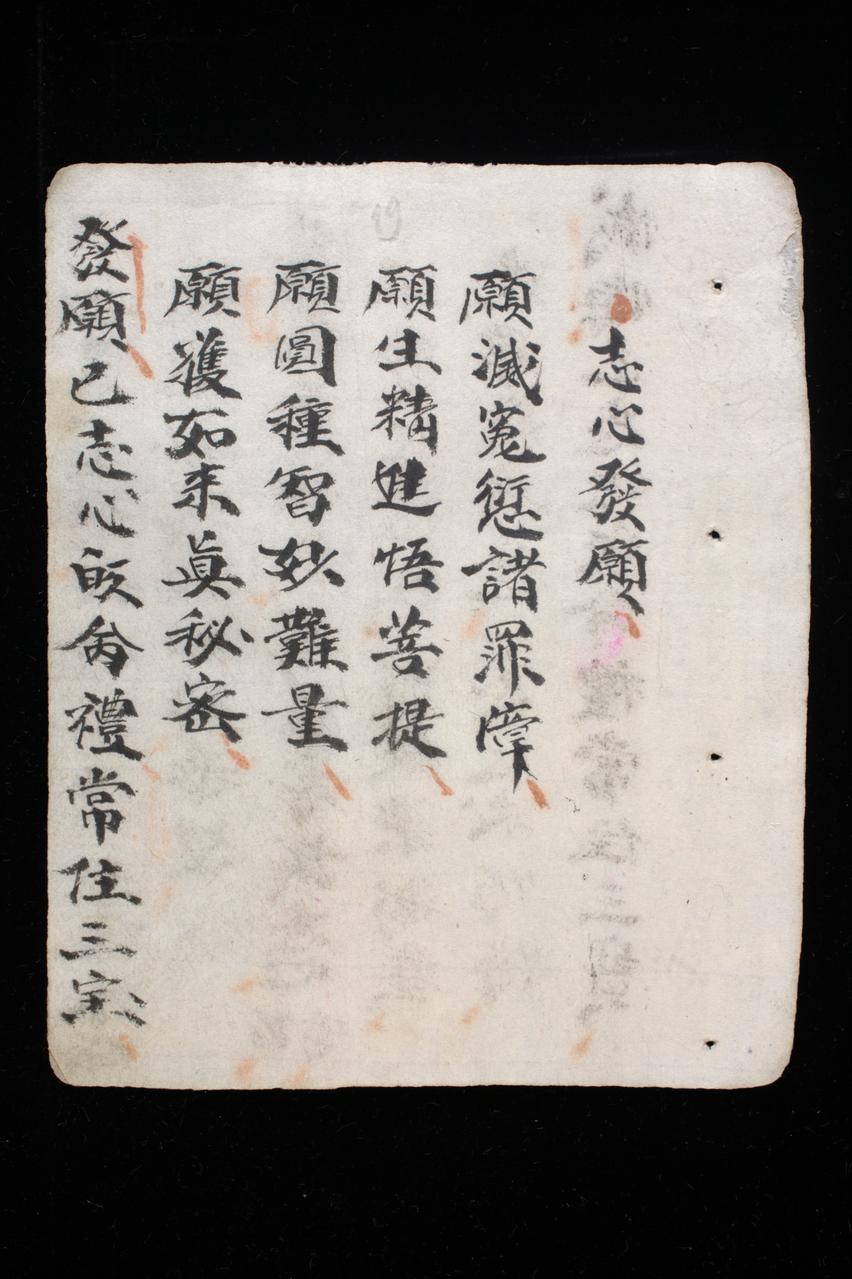 志心發願
願滅寃愆諸罪障
願生精進悟菩提
願圓種智妙難量
願獲如来真秘密
發願已志心皈命禮常住三宝